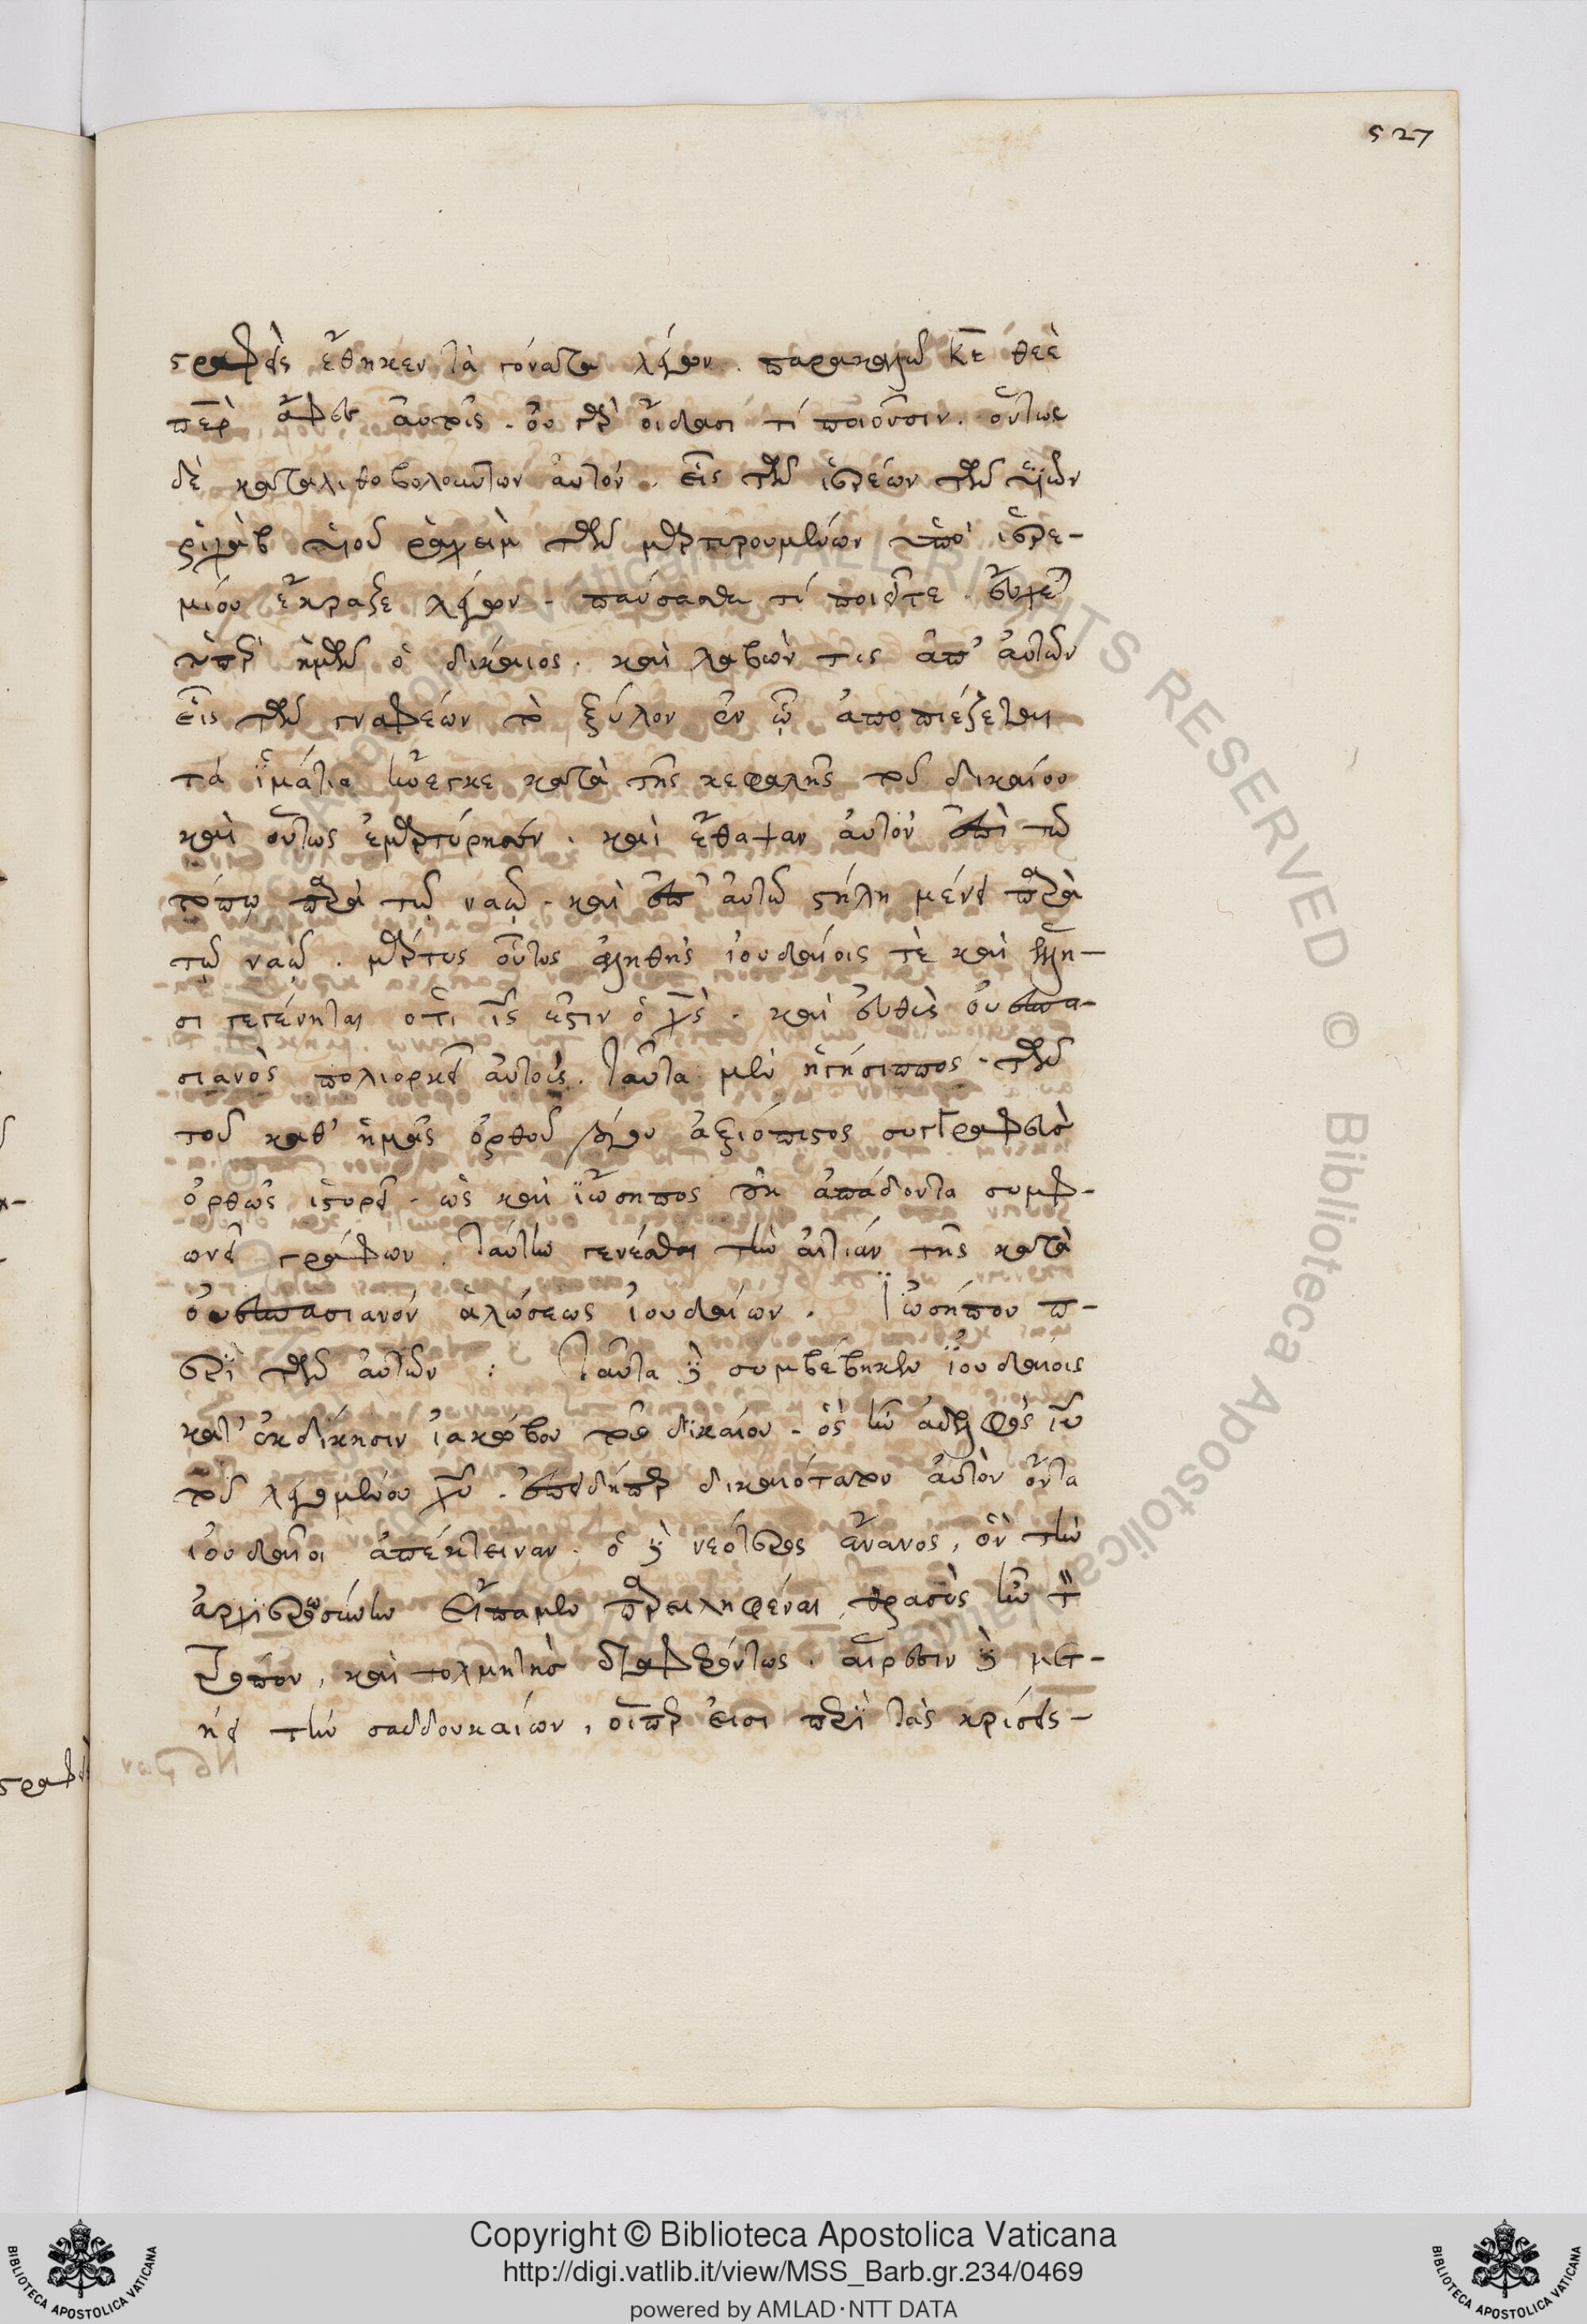 527
στραφεὶς ἔθηκεν τὰ γόνατα λέγων. παρακαλῶ κε̅ θεὲ
πε̅ρ ἄφες αὐτοῖς. οὐ γὰρ οἴδασι τί ποιοῦσιν. οὕτως
δὲ καταλιθοβολούντων αὐτόν. εἷς τῶν ἱερέων τῶν υἱῶν
ῥιχὰβ υἱοῦ ῥαχειμ τῶν μαρτυρουμένων ὑπὸ ἱερε-
μίου ἔκραξε λέγων. παύσασθε τί ποιεῖτε. εὔχεται
ὑπὲρ ἡμῶν ὁ δίκαιος. καὶ λαβών τις ἀπ' αὐτῶν
εἷς τῶν γναφέων τὸ ξύλον ἐν ᾧ ἀποπιέζεται
τὰ ἱμάτια ἤνεγκε κατὰ τῆς κεφαλῆς τοῦ δικαίου
καὶ οὕτως ἐμαρτύρησεν. καὶ ἔθαψαν αὐτὸν ἐπὶ τῷ
τόπῳ παρὰ τῷ ναῷ. καὶ ἐπ' αὐτῷ στήλη μένει παρὰ
τῷ ναῷ. μάρτυς οὗτος ἀληθὴς ἰουδαίοις τὲ καὶ ἕλλη-
σι γεγένηται ὅτι ι̅ς̅ ἐστιν ὁ χ̅ς̅. καὶ εὐθὺς οὐεσπα-
σιανὸς πολιορκεῖ αὐτοὺς. ταῦτα μὲν ἡγήσιππος. τῶν
τοῦ καθ' ἡμᾶς ὀρθοῦ λόγου ἀξιόπιστος συγγραφεὺς
ὀρθῶς ἱστορεῖ. ὡς καὶ ἰώσηπος οὐκ ἀπάδοντα συμφ-
ωνεῖ γράφων. ταύτην γενέσθαι τὴν αἰτίαν τῆς κατὰ
οὐεσπασιανὸν ἁλώσεως ἰουδαίων. Ἰωσήπου π-
ερὶ τῶν αὐτῶν : Ταῦτα δὲ συμβέβηκεν ἰουδαίοις
κατ' ἐκδίκησιν ἰακώβου τοῦ δικαίου. ὃς ἦν ἀδελφὸς ι̅υ̅
τοῦ λεγομένου χ̅υ̅. ἐπειδήπερ δικαιότατον αὐτὸν ὄντα
ἰουδαῖοι ἀπέκτειναν. ὁ δὲ νεότερος ἄνανος, ὃν τὴν
ἀρχιερωσύνην εἴπαμεν παρειληφέναι, θρασὺς ἦν τὸν
τρόπον, καὶ τολμητὴς διαφερόντως. αἵρεσιν δὲ μετ-
ήει τῶν σαδδουκαίων, οἵπερ εἰσι περὶ τὰς κρίσεις-
Copyright © Biblioteca Apostolica Vaticana
http://digi.vatlib.it/view/MSS_Barb.gr.234/0469
powered by AMLAD·NTT DATA